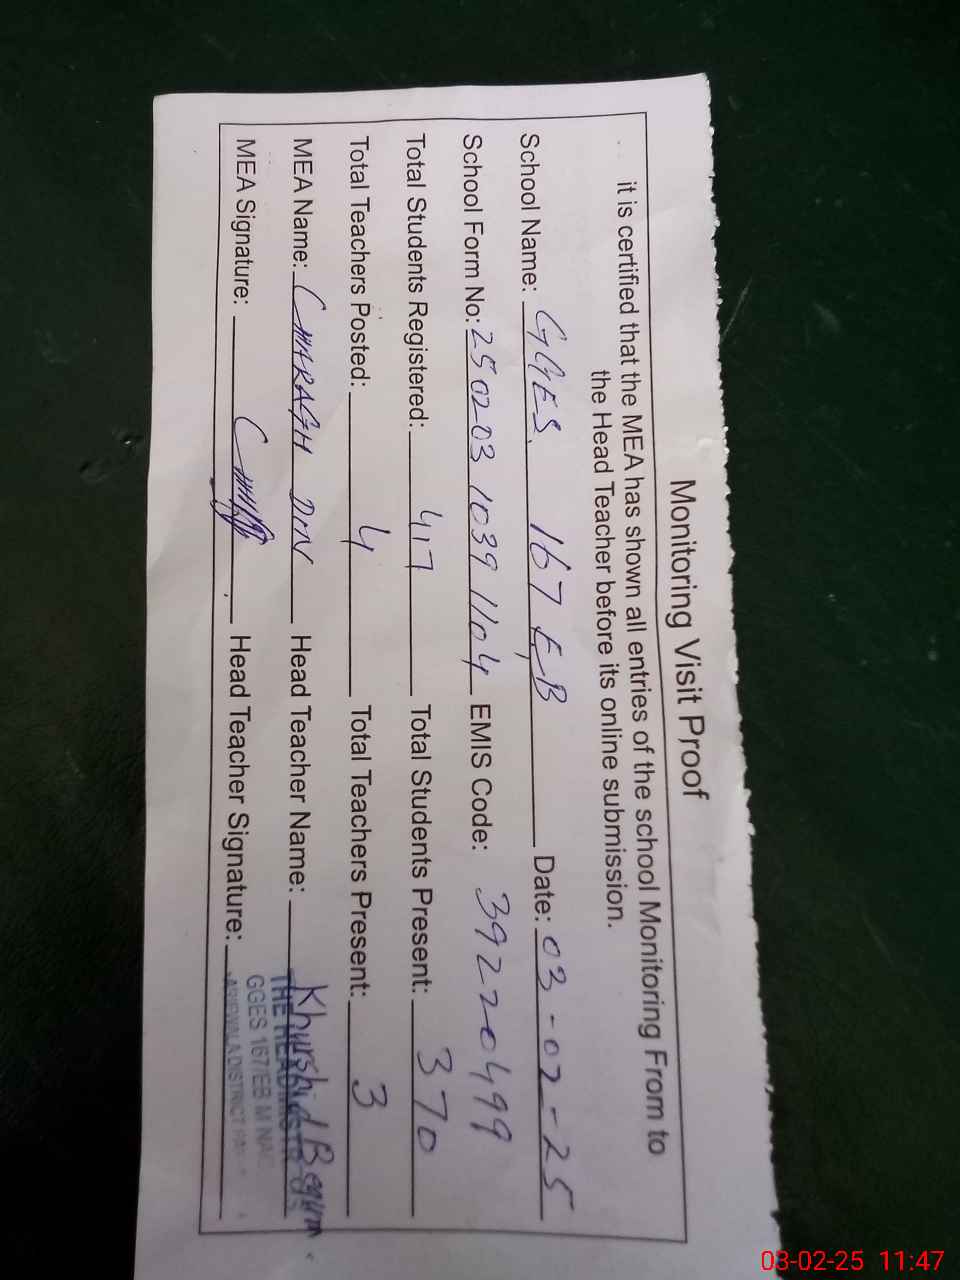 Monitoring Visit Proof
it is certified that the MEA has shown all entries of the school Monitoring From to
the Head Teacher before its online submission.
School Name: GGES. 167 E.B Date: 03-02-25
School Form No: 250203 1039 1104 EMIS Code: 39220499
Total Students Registered: 417 Total Students Present: 370
Total Teachers Posted: 4 Total Teachers Present: 3
MEA Name: CHARAGH DIN Head Teacher Name: Khurshid Begum.
MEA Signature: Head Teacher Signature:
GGES 167/EB M
DISTRICT
03-02-25 11:47